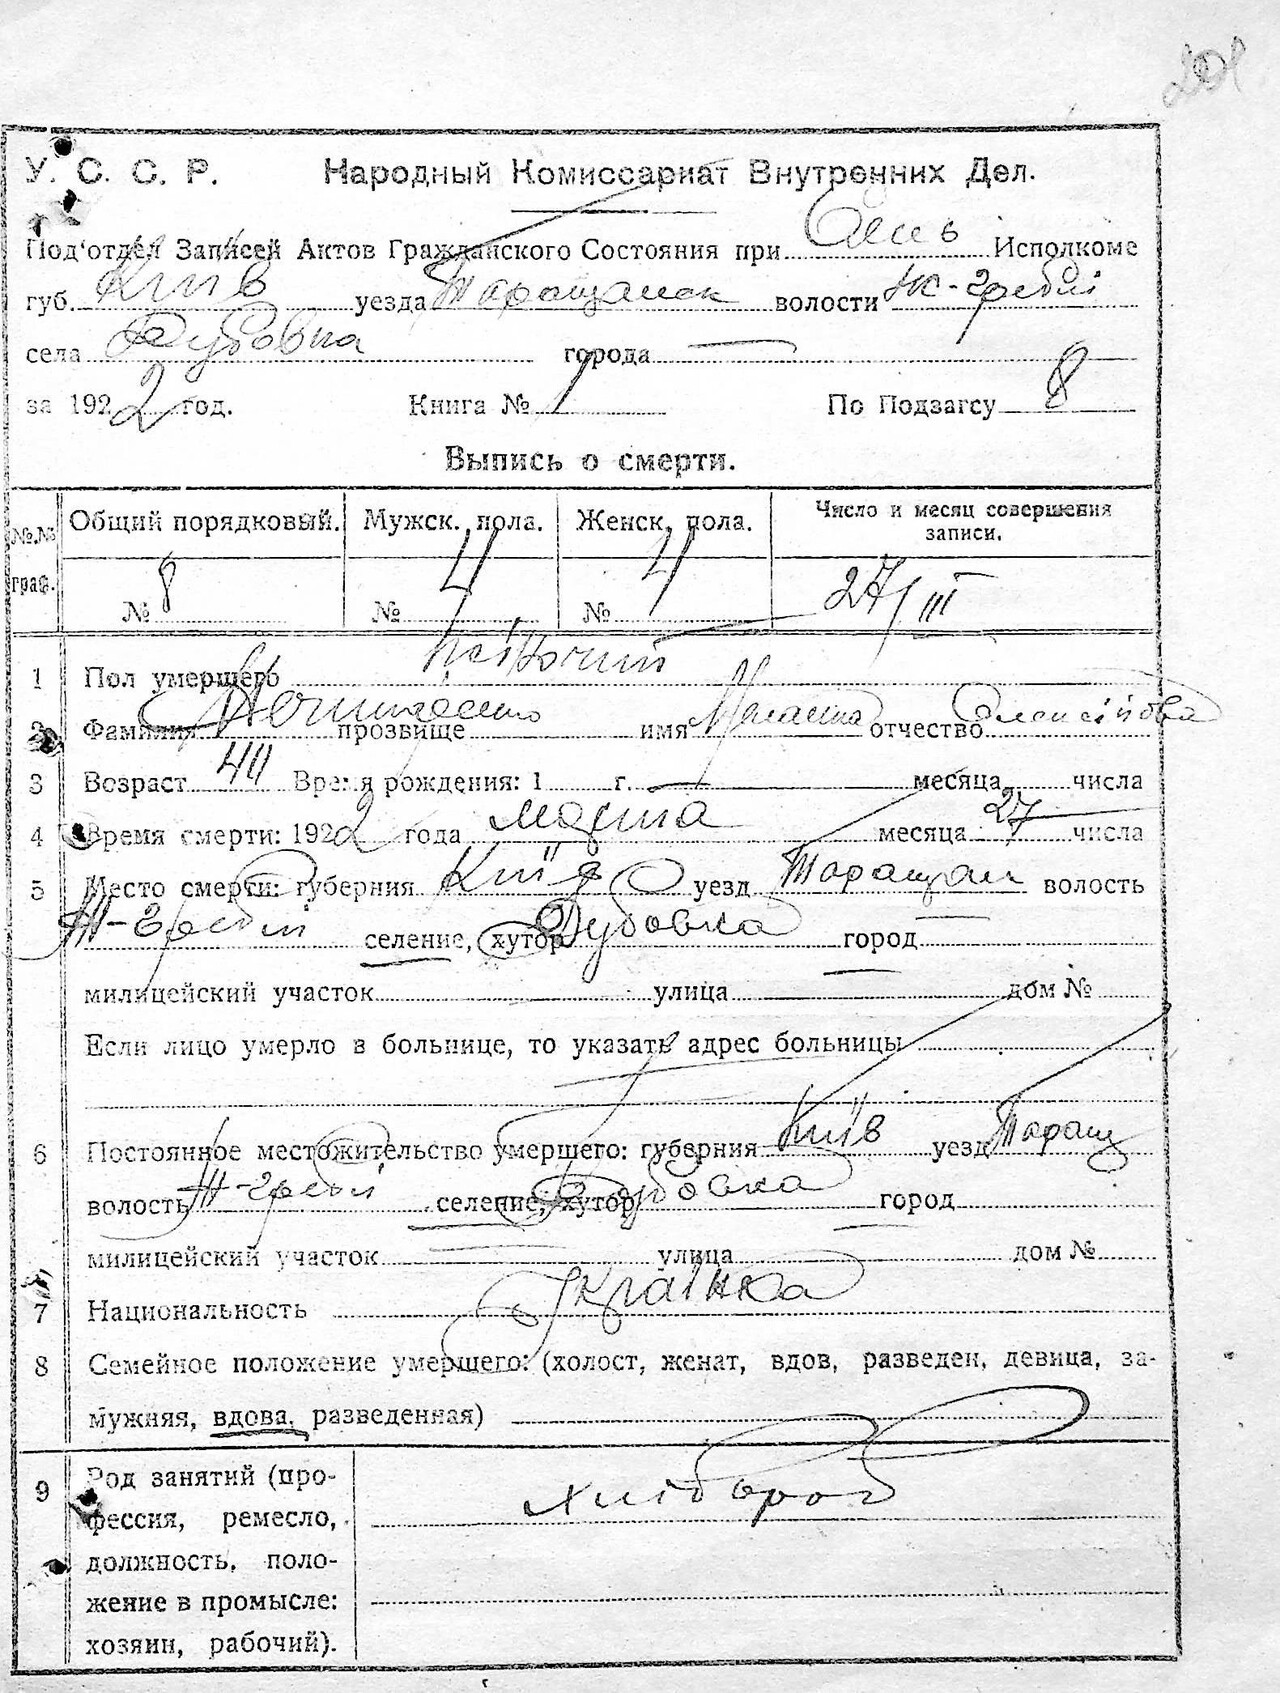 201
У. С. С. Р. Народный Комиссариат Внутренних Дел.
Под'отдел Записей Актов Гражданского Состояния при Исполкоме
губ. Київ уезда Таращанск волости Ж-Гребли
села Дубовка города —
за 1922 год. Книга № 1 По Подзагсу 8
Выпись о смерти.
№№ граф. Общий порядковый. Мужск. пола. Женск. пола. Число и месяц совершения записи.
№ 8 № 4 № 4 27/III
1 Пол умершего жіночий
2 Фамилия прозвище имя отчество
3 Возраст 44 Время рождения: 1 г. — месяца числа
4 Время смерти: 1922 года марта месяца 27 числа
5 Место смерти: губерния Київ уезд Таращан волость
Ж-Гребли селение, хутор Дубовка город —
милицейский участок улица дом №
Если лицо умерло в больнице, то указать адрес больницы
6 Постоянное местожительство умершего: губерния Київ уезд Таращ
волость Ж-Гребли селение, хутор Дубовка город —
милицейский участок улица дом №
7 Национальность Українка
8 Семейное положение умершего: (холост, женат, вдов, разведен, девица, за-
мужняя, вдова, разведенная)
9 Род занятий (про-
фессия, ремесло,
должность, поло-
жение в промысле:
хозяин, рабочий).
хлібороб